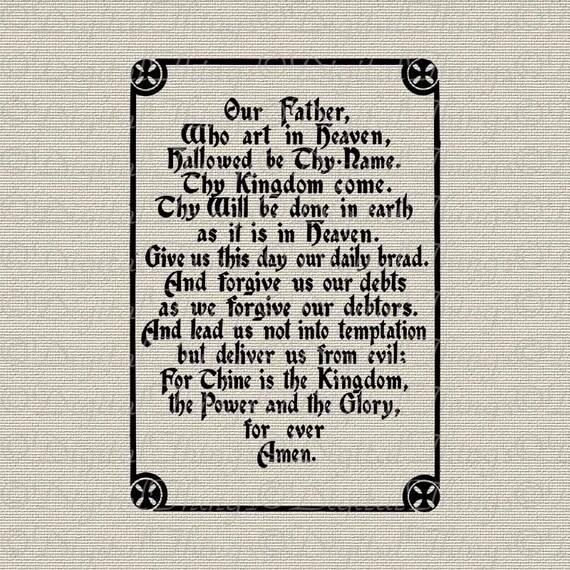 Our Father,
Who art in Heaven,
Hallowed be Thy·Name.
Thy Kingdom come.
Thy Will be done in earth
as it is in Heaven.
Give us this day our daily bread.
And forgive us our debts
as we forgive our debtors.
And lead us not into temptation
but deliver us from evil:
For Thine is the Kingdom,
the Power and the Glory,
for ever
Amen.